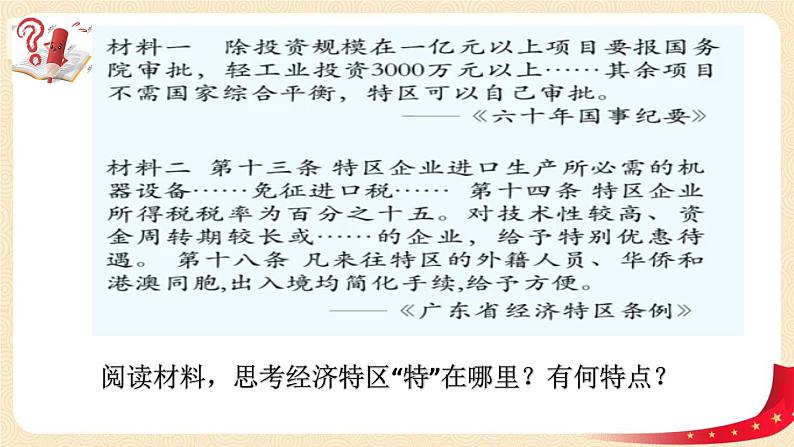 材料一 除投资规模在一亿元以上项目要报国务
院审批，轻工业投资3000万元以上……其余项目
不需国家综合平衡，特区可以自己审批。
——《六十年国事纪要》
材料二 第十三条 特区企业进口生产所必需的机
器设备……免征进口税…… 第十四条 特区企业
所得税税率为百分之十五。对技术性较高、资
金周转期较长或……的企业，给予特别优惠待
遇。 第十八条 凡来往特区的外籍人员、华侨和
港澳同胞,出入境均简化手续,给予方便。
——《广东省经济特区条例》
阅读材料，思考经济特区“特”在哪里？有何特点？